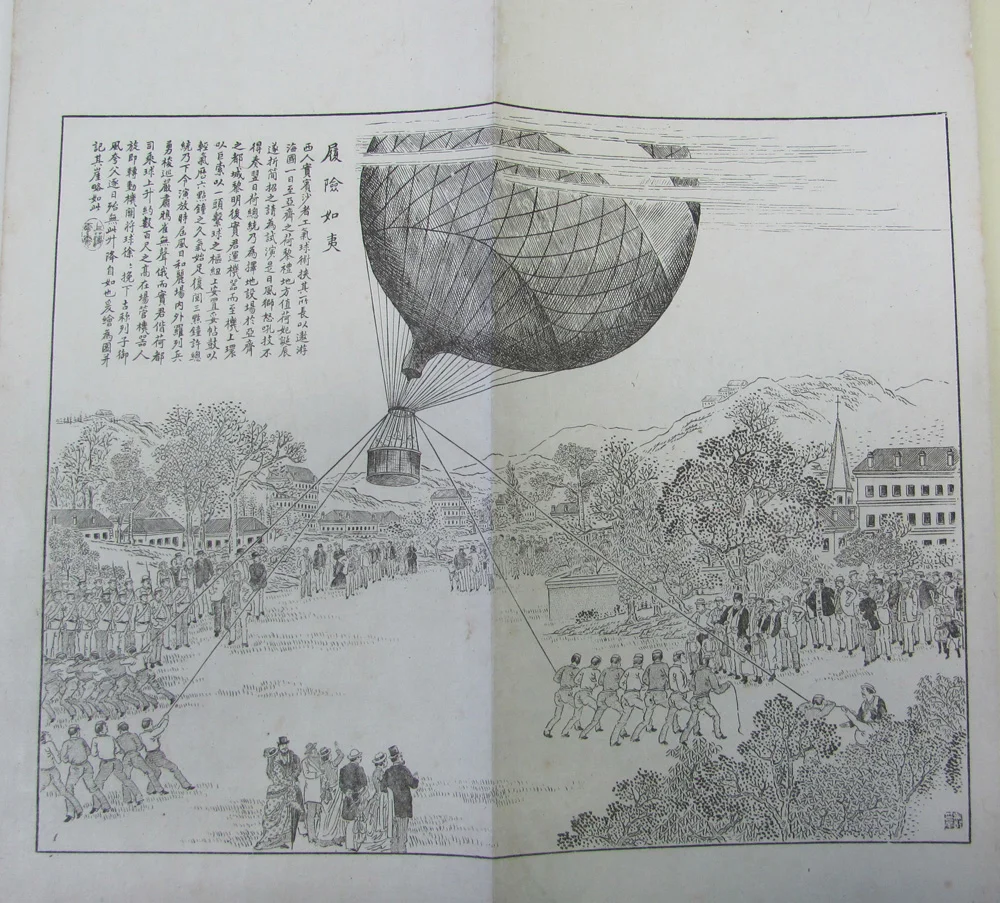 履險如夷
西人賓賓沙者工氣球術挾其所長以遨游
海國一日至亞齊之荷黎禮地方值荷妃誕辰
遂折簡招之請為試演是日風獅怒吼技不
得奏翌日荷總統乃為擇地設場於亞齊
之都城黎明後賓君運機器而至機上環
以巨索以一頭繫球之樞紐上安置妥帖鼓以
輕氣歷六點鐘之久氣始足復閱三點鐘許總
統乃下令演放時屆風日和麗場內外羅列兵
勇梭巡嚴肅鴉雀無聲俄而賓君偕荷都
司乘球上升約數百尺之高在場管機器人
旋即轉動機關將球徐徐挽下古称列子御
風旁久遂日殆無此升降自如也爰繪為圖并
記其崖略如此